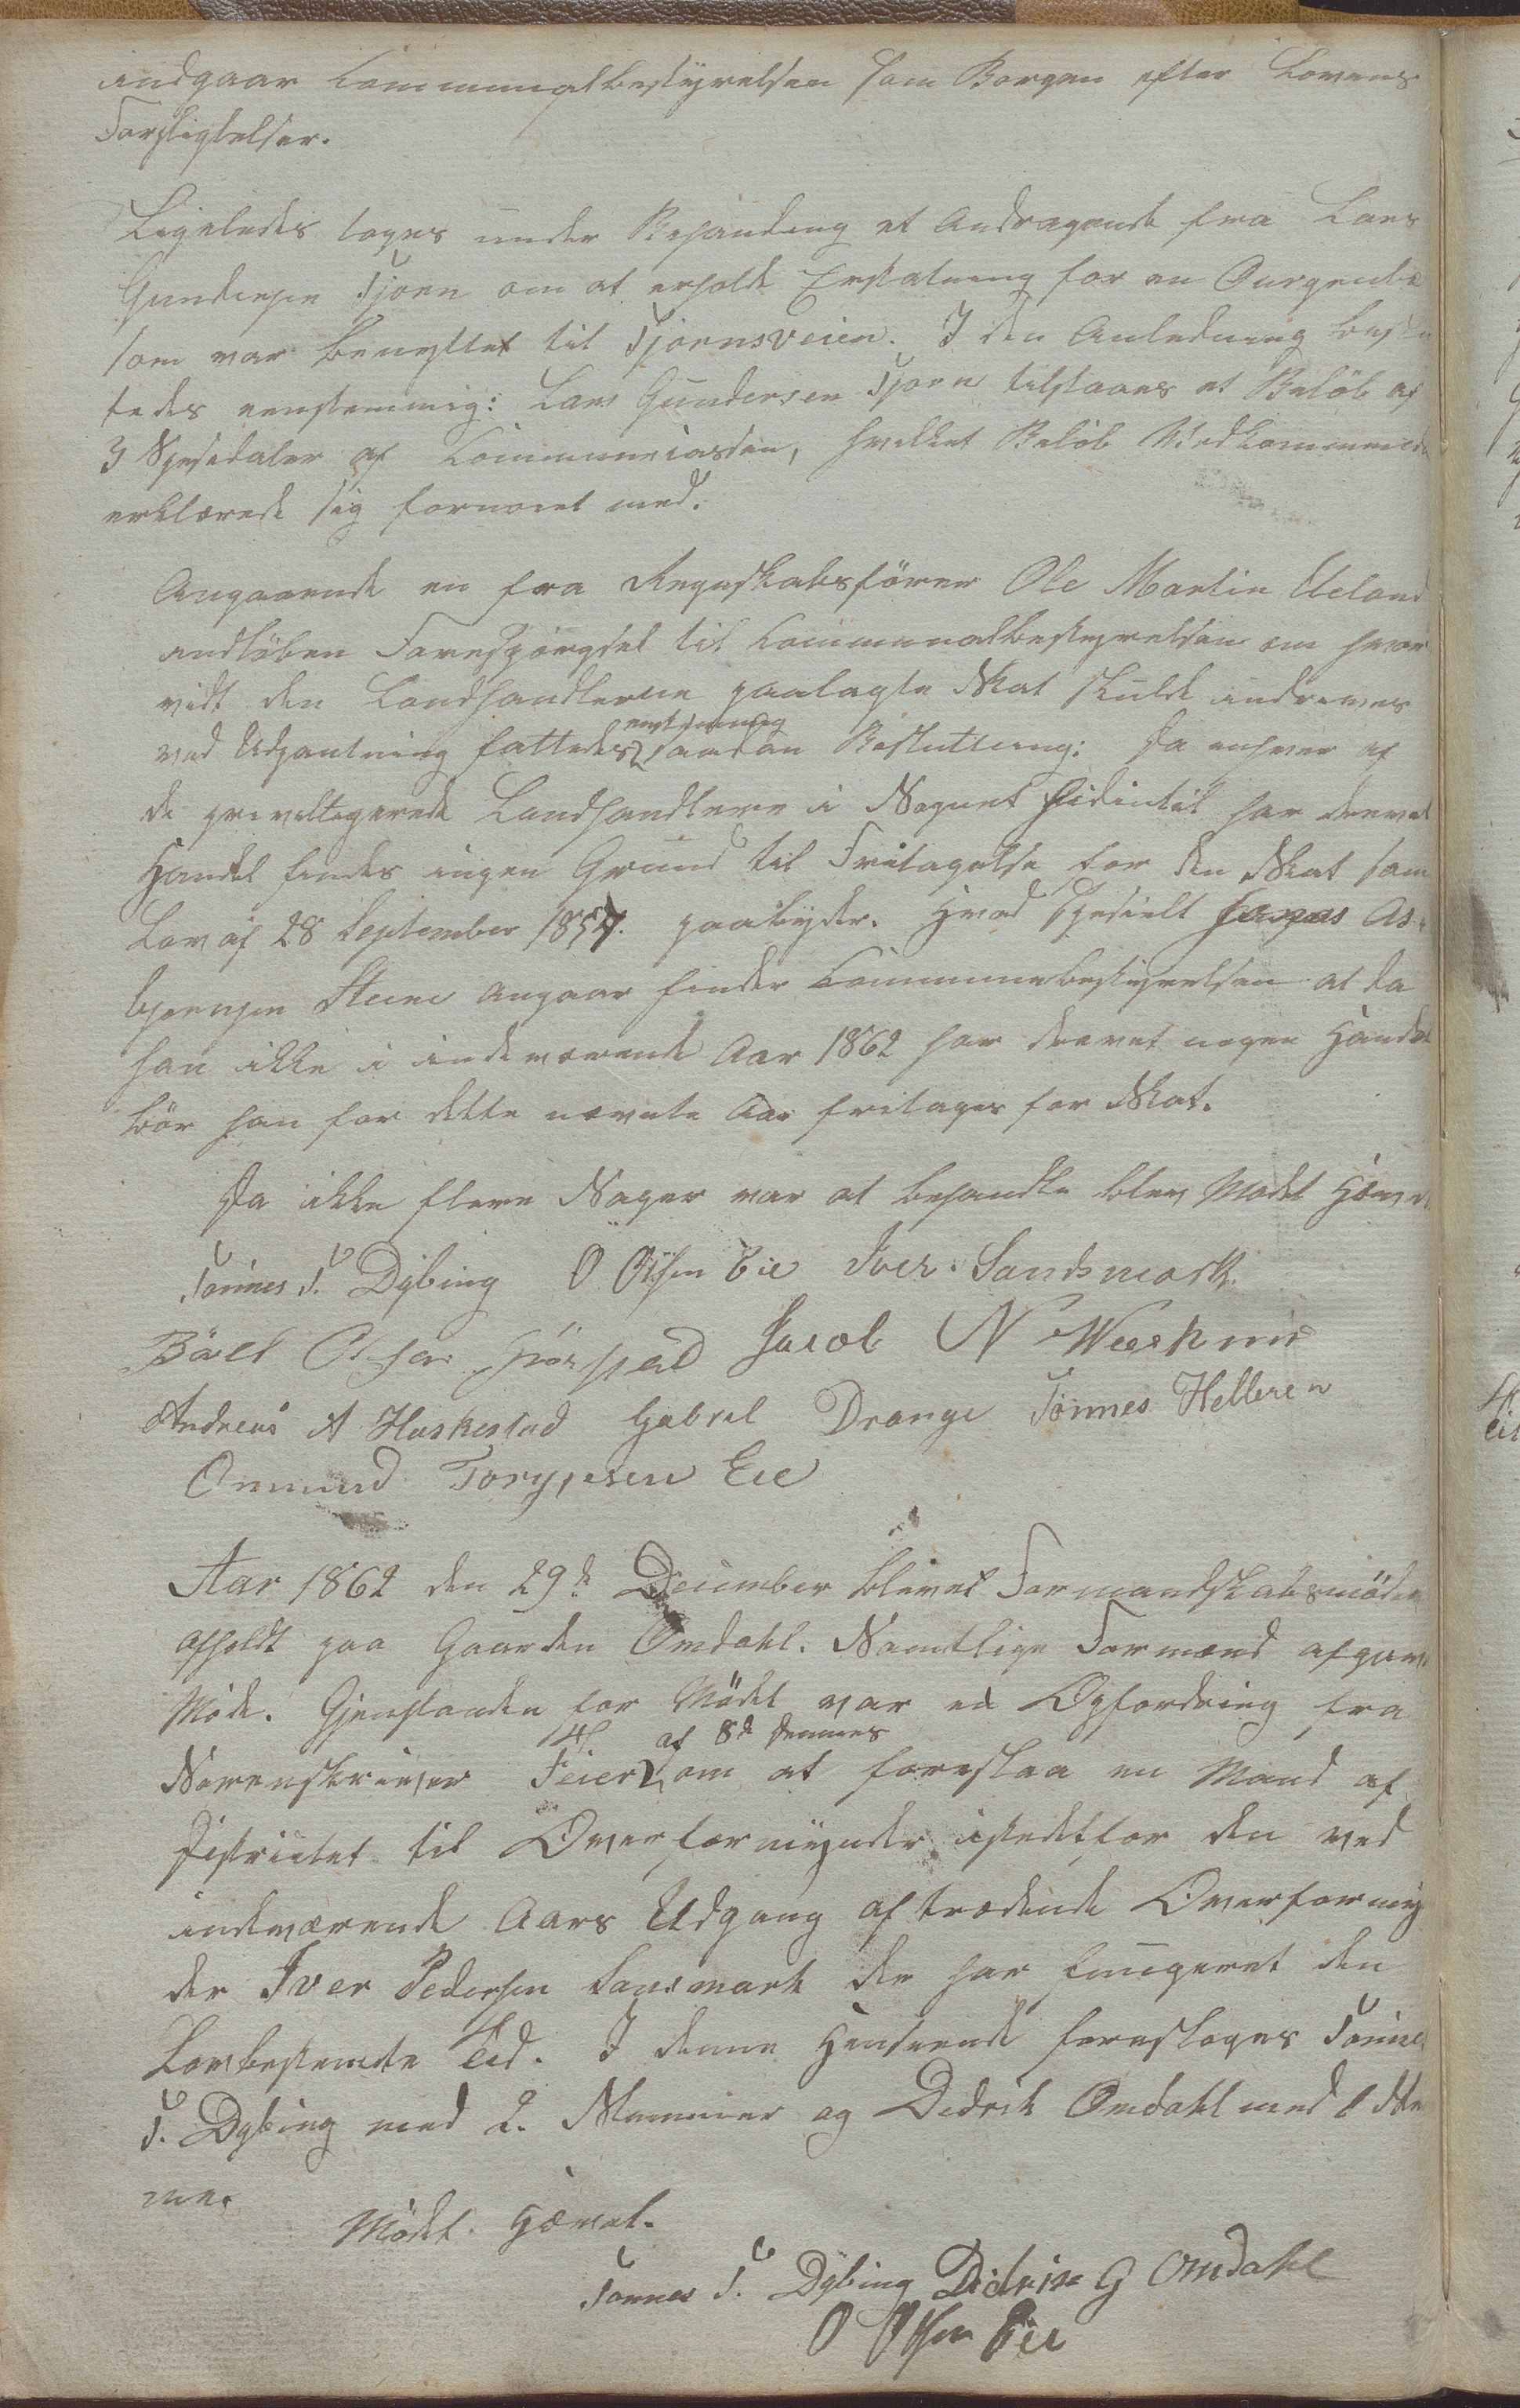 indgaar Communalbestyrelsen som Borgen efter Lovens
Forpligtelser.
Ligeledes toges under Behandling et Andragende fra Lars
Gundersen Tjørn om at erholde Erstatning for en
som var benyttet til Tjørnsveien. I den Anledning beslu
tedes eenstemmig: Lars Gundersen Tjørn tilstaaes et Beløb af
3 Spesidaler af Communecassen, hvilket Beløb Vedkommende
erklærede sig fornøiet med.
Angaaende en fra Regnskabsfører Ole Martin Ueland
indløben Forespørgsel til Communalbestyrelsen om hvor
vidt den Landhandlerne paalagte Skat skulde inddrives
ved Udpantning fattedes eenstemmig saadan Beslutning: Da enhver af
de privilligerede Landhandlere i Sognet hidintil har drevet
Handel findes ingen Grund til Fritagelse for den Skat som
Lov af 28 September 1857. paabyder. Hvad spesielt As-
bjørnsen Steene angaar finder Communebestyrelsen at da
han ikke i indeværende Aar 1862 har drevet nogen Handel
bør han for dette nævnte Aar fritages for Skat.
Da ikke flere Sager var at behandle blev Mødet Hævet
Tønnes T. Dybing O Olsen Eie Iver Sandsmark
Bael Olsen Jacob N
Andreas A Huskestad Gabrel Drange Tønnes Helleren
Onmund Torgersen Eie
Aar 1862 den 29de December blevet Formandskabsmøde
afholdt paa Gaarden Omdahl. Samtlige Formænd afgave
Møde. Gjenstanden for Mødet var en Opfordring fra
Sorenskriver Feier af 8de dennes om at foreslaa en Mand af
Districtet til Overformynder istedetfor den ved
indeværende Aars Udgang aftrædende Overformyn
der Iver Pedersen Sansmark der har fungeret den
Lovbestemte Tid. I denne Henseende foresloges Tønnes
T. Dybing med 2. Stemmer og Didrik Omdahl med 1 Stem
me.
Mødet Hævet.
Tønnes T. Dybing Didrik G Omdahl
O Olsen Eie